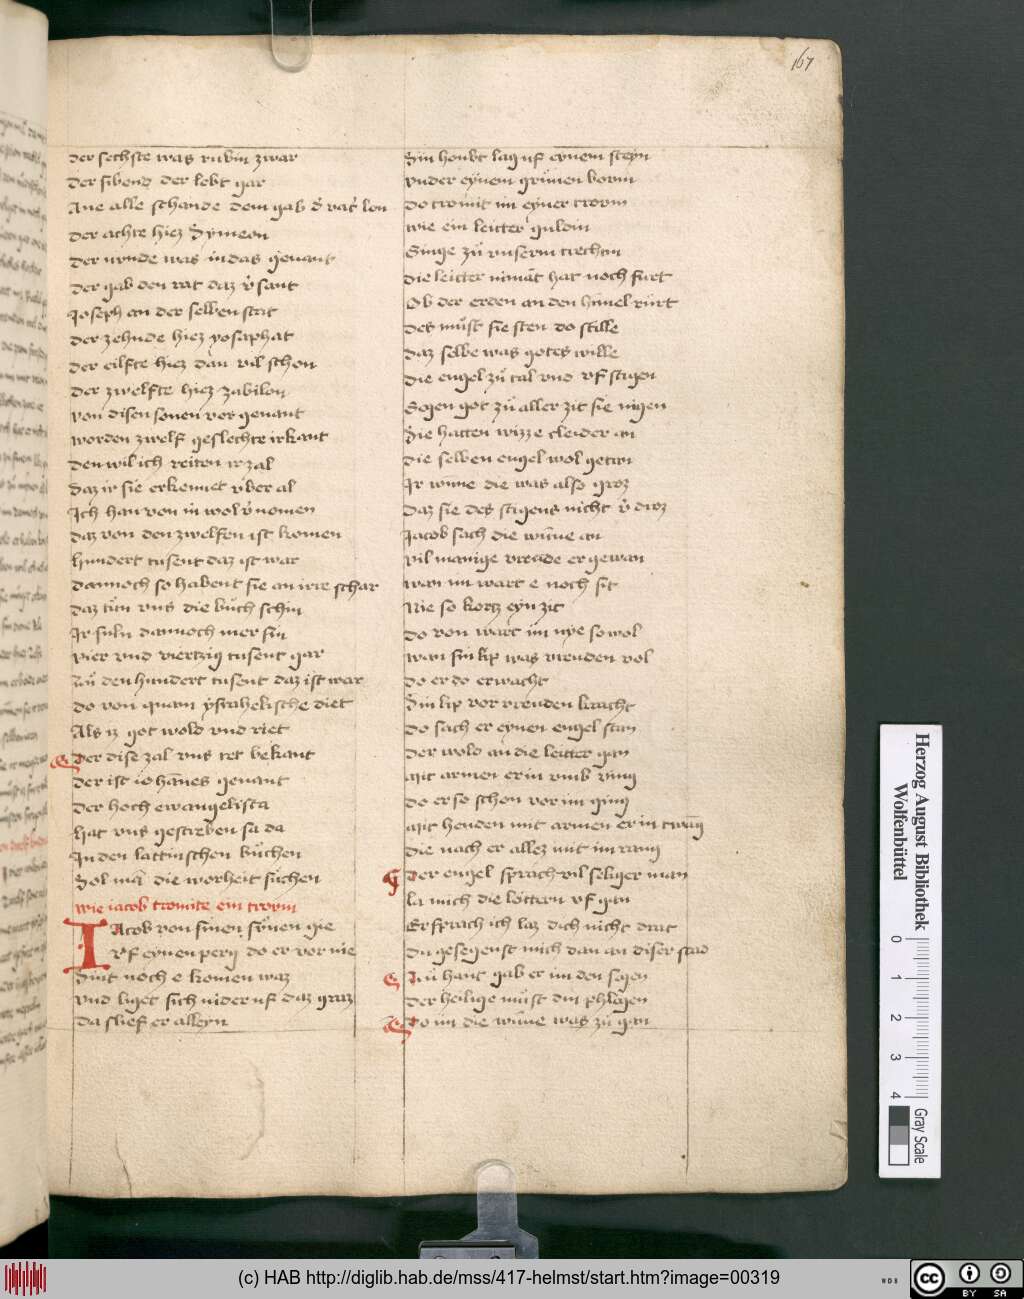 167
der sechste was rubin zwar
der sibend der lebt gar
Ane alle schande dem gab d' vat' lon
der achte hiez Symeon
der nvnde was iudas genant
der gab den rat daz v'sant
Joseph an der selben stat
der zehnde hiez yosaphat
der eilfte hiez dan vil schon
der zwelfte hiez zabilon
von disen sonen vor genant
worden zwelf geslechte irkant
den wil ich reiten ir zal
daz ir sie erkennet vber al
Ich han von in wol v'nomen
daz von den zwelfen ist komen
hundert tusent daz ist war
dannoch so habent sie an irre schar
daz tun vns die buch schin
Ir suln dannoch mer sin
vier vnd viertzig tusent gar
Zu den hundert tusent daz ist war
do von quam ysrahelische diet
Als iz got wold vnd riet
Der dise zal vns tet bekant
der ist iohanes genant
der hoch ewangelista
hat vns gescreben sa da
In den lattinschen buchen
Sol ma die worheit suchen
wie iacob tromite ein trovm
IAcob von sinen sonen gie
vf eynen perg do er vor nie
Sint noch e komen waz
vnd liget sich nider uf daz graz
da slief er alleyn
Sin houbt lag uf eynem steyn
vnder eynem grunen bovm
do tromit im eyner trovm
wie ein leitter guldin
Singe zu vnserm trechtin
die leitter nimat hat noch furt
Ob der erden an den himel rurt
des must sie sten do stille
daz selbe was gotes wille
die engel zu tal vnd vf stigen
Sogen got zu aller zit sie nigen
Sie hatten wizze cleider an
die selben engel wol getan
Ir wune die was also groz
daz sie des stigens nicht v'droz
Jacob sach die wune an
vil manige vreude er gewan
wan im wart e noch sit
Nie so kortz eyn zit
do von wart im nye so wol
wan sin lip was vreuden vol
do er do erwacht
Sin lip vor vreuden lracht
do sach er eynen engel stan
der wold an die leitter gan
Mit armen er in vmb ving
do er so schon vor im ging
Mit henden mit armen er in twag
die nach er allez mit im rang
Der engel sprach vil seliger man
la mich die lottern vf gan
Er sprach ich laz dich nicht drat
du gesegenst mich dan an diser stad
Zu hant gab er im den segen
der heilige must din phlegen
Do im die wune was zu gan
Herzog August Bibliothek
Wolfenbüttel
0 1 2 3 4
Gray Scale
(c) HAB http://diglib.hab.de/mss/417-helmst/start.htm?image=00319
WDB
cc BY SA